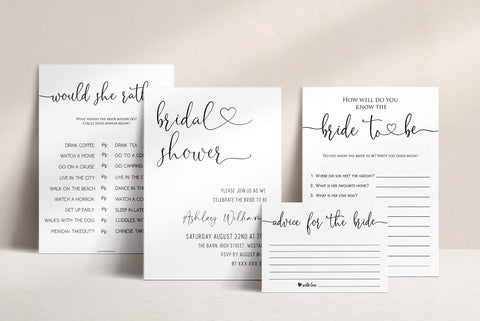 would she rath
WHAT WOULD THE BRIDE RATHER DO?
CIRCLE YOUR ANSWER BELOW!
DRINK COFFEE or DRINK TEA
WATCH A MOVIE or GO TO A CO
GO ON A CRUISE or GO CAMPING
LIVE IN THE CITY or LIVE IN THE
WALK ON THE BEACH or DANCE IN
WATCH A HORROR or WATCH A
GET UP EARLY or SLEEP IN LATE
WALKS WITH THE DOG or CUDDLES
MEXICAN TAKEOUT? or CHINESE TAKE
bridal
shower
PLEASE JOIN US AS WE
CELEBRATE THE BRIDE TO BE
Ashley William
SATURDAY AUGUST 22ND AT 7P
THE BARN, HIGH STREET, WESTA
RSVP BY AUGUST
07 XXX XXX X
HOW WELL DO YOU
KNOW THE
bride to be
DO YOU KNOW THE BRIDE TO BE? WRITE YOU GUESS BELOW!
1. WHERE DID SHE MEET THE GROOM?
2. WHAT IS HER FAVOURITE HOME?
3. WHAT IS HER STAR SIGN?
advice for the bride
with love